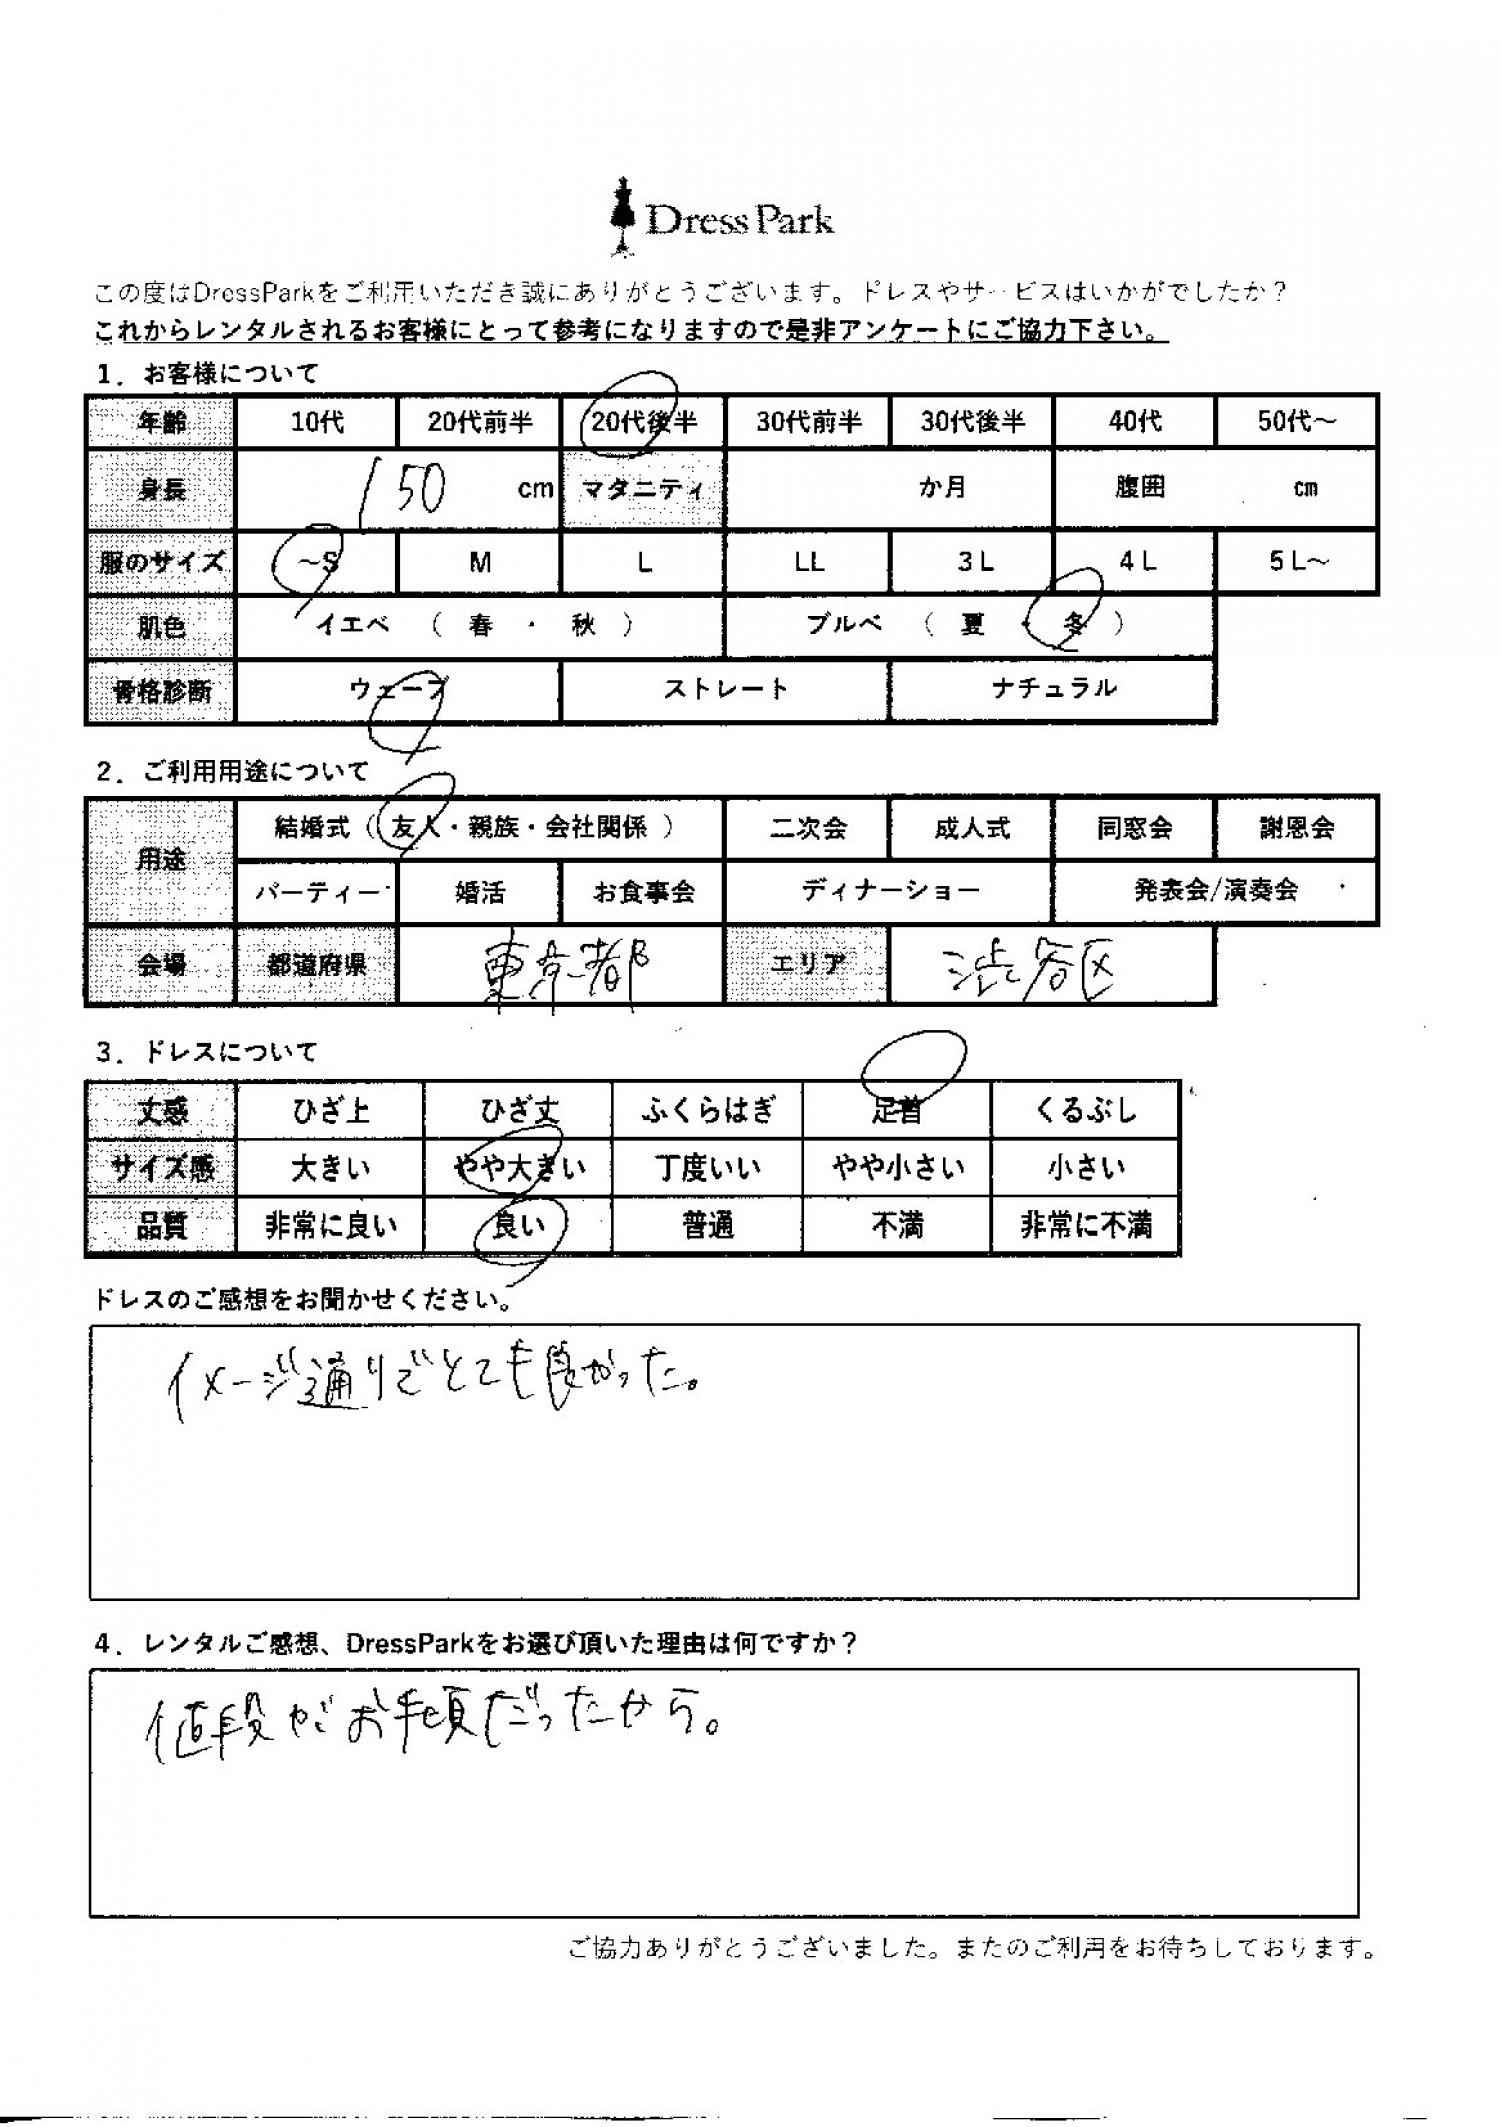 Dress Park
この度はDressParkをご利用いただき誠にありがとうございます。ドレスやサービスはいかがでしたか？
これからレンタルされるお客様にとって参考になりますので是非アンケートにご協力下さい。
1．お客様について
年齢 10代 20代前半 20代後半 30代前半 30代後半 40代 50代～
身長 150 cm マタニティ か月 腹囲 cm
服のサイズ ～S M L LL 3L 4L 5L～
肌色 イエベ （ 春 ・ 秋 ） ブルベ （ 夏 ・ 冬 ）
骨格診断 ウェーブ ストレート ナチュラル
2．ご利用用途について
用途 結婚式（ 友人・親族・会社関係 ） 二次会 成人式 同窓会 謝恩会
パーティー 婚活 お食事会 ディナーショー 発表会/演奏会
会場 都道府県 東京都 エリア 渋谷区
3．ドレスについて
丈感 ひざ上 ひざ丈 ふくらはぎ 足首 くるぶし
サイズ感 大きい やや大きい 丁度いい やや小さい 小さい
品質 非常に良い 良い 普通 不満 非常に不満
ドレスのご感想をお聞かせください。
イメージ通りでとても良かった。
4．レンタルご感想、DressParkをお選び頂いた理由は何ですか？
値段がお手頃だったから。
ご協力ありがとうございました。またのご利用をお待ちしております。